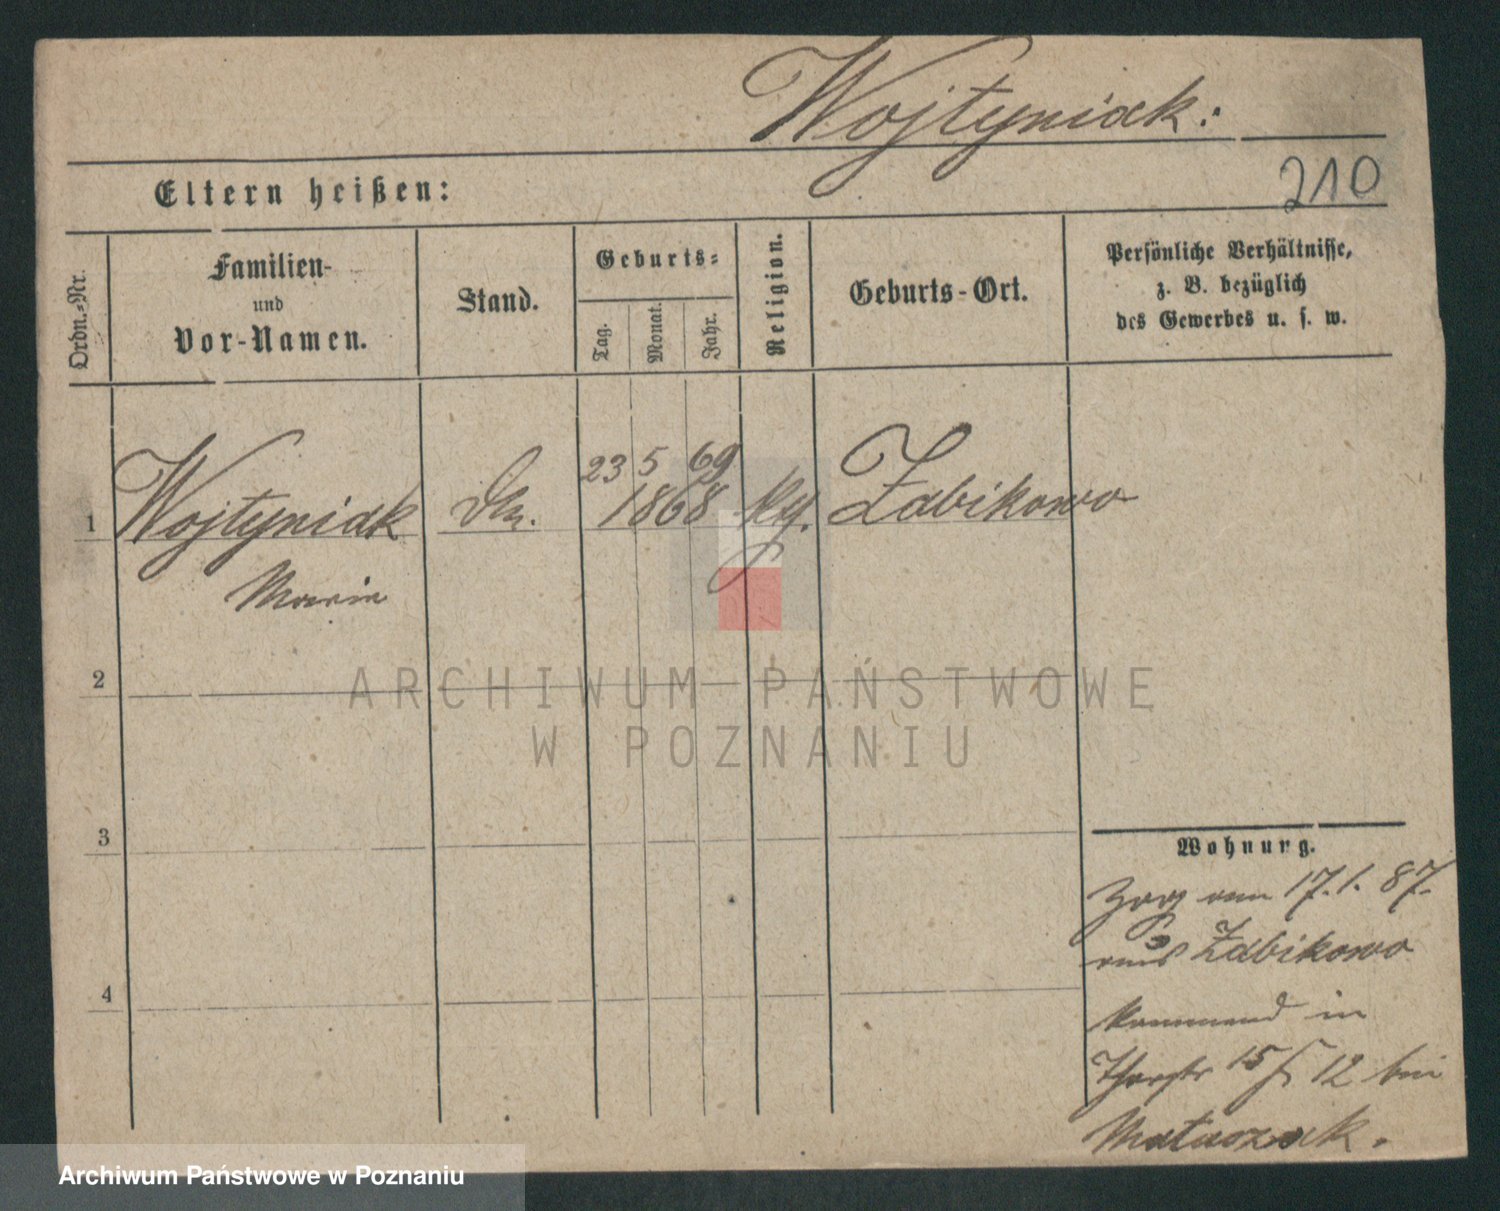 Wojtyniak.
210
Eltern heißen:
Ordn.-Nr.
Familien-
und
Vor-Namen.
Stand.
Geburts-
Tag.
Monat.
Jahr.
Religion.
Geburts-Ort.
Persönliche Verhältnisse,
z. B. bezüglich
des Gewerbes u. s. w.
23 5 69
1 Wojtyniak 1868 Żabikowo
Marie
2
3
4
Wohnung.
Zzg vom 17.1.87.
aus Żabikowo
kommend in
15 12 bei
Matuszak.
ARCHIWUM PAŃSTWOWE
W POZNANIU
Archiwum Państwowe w Poznaniu